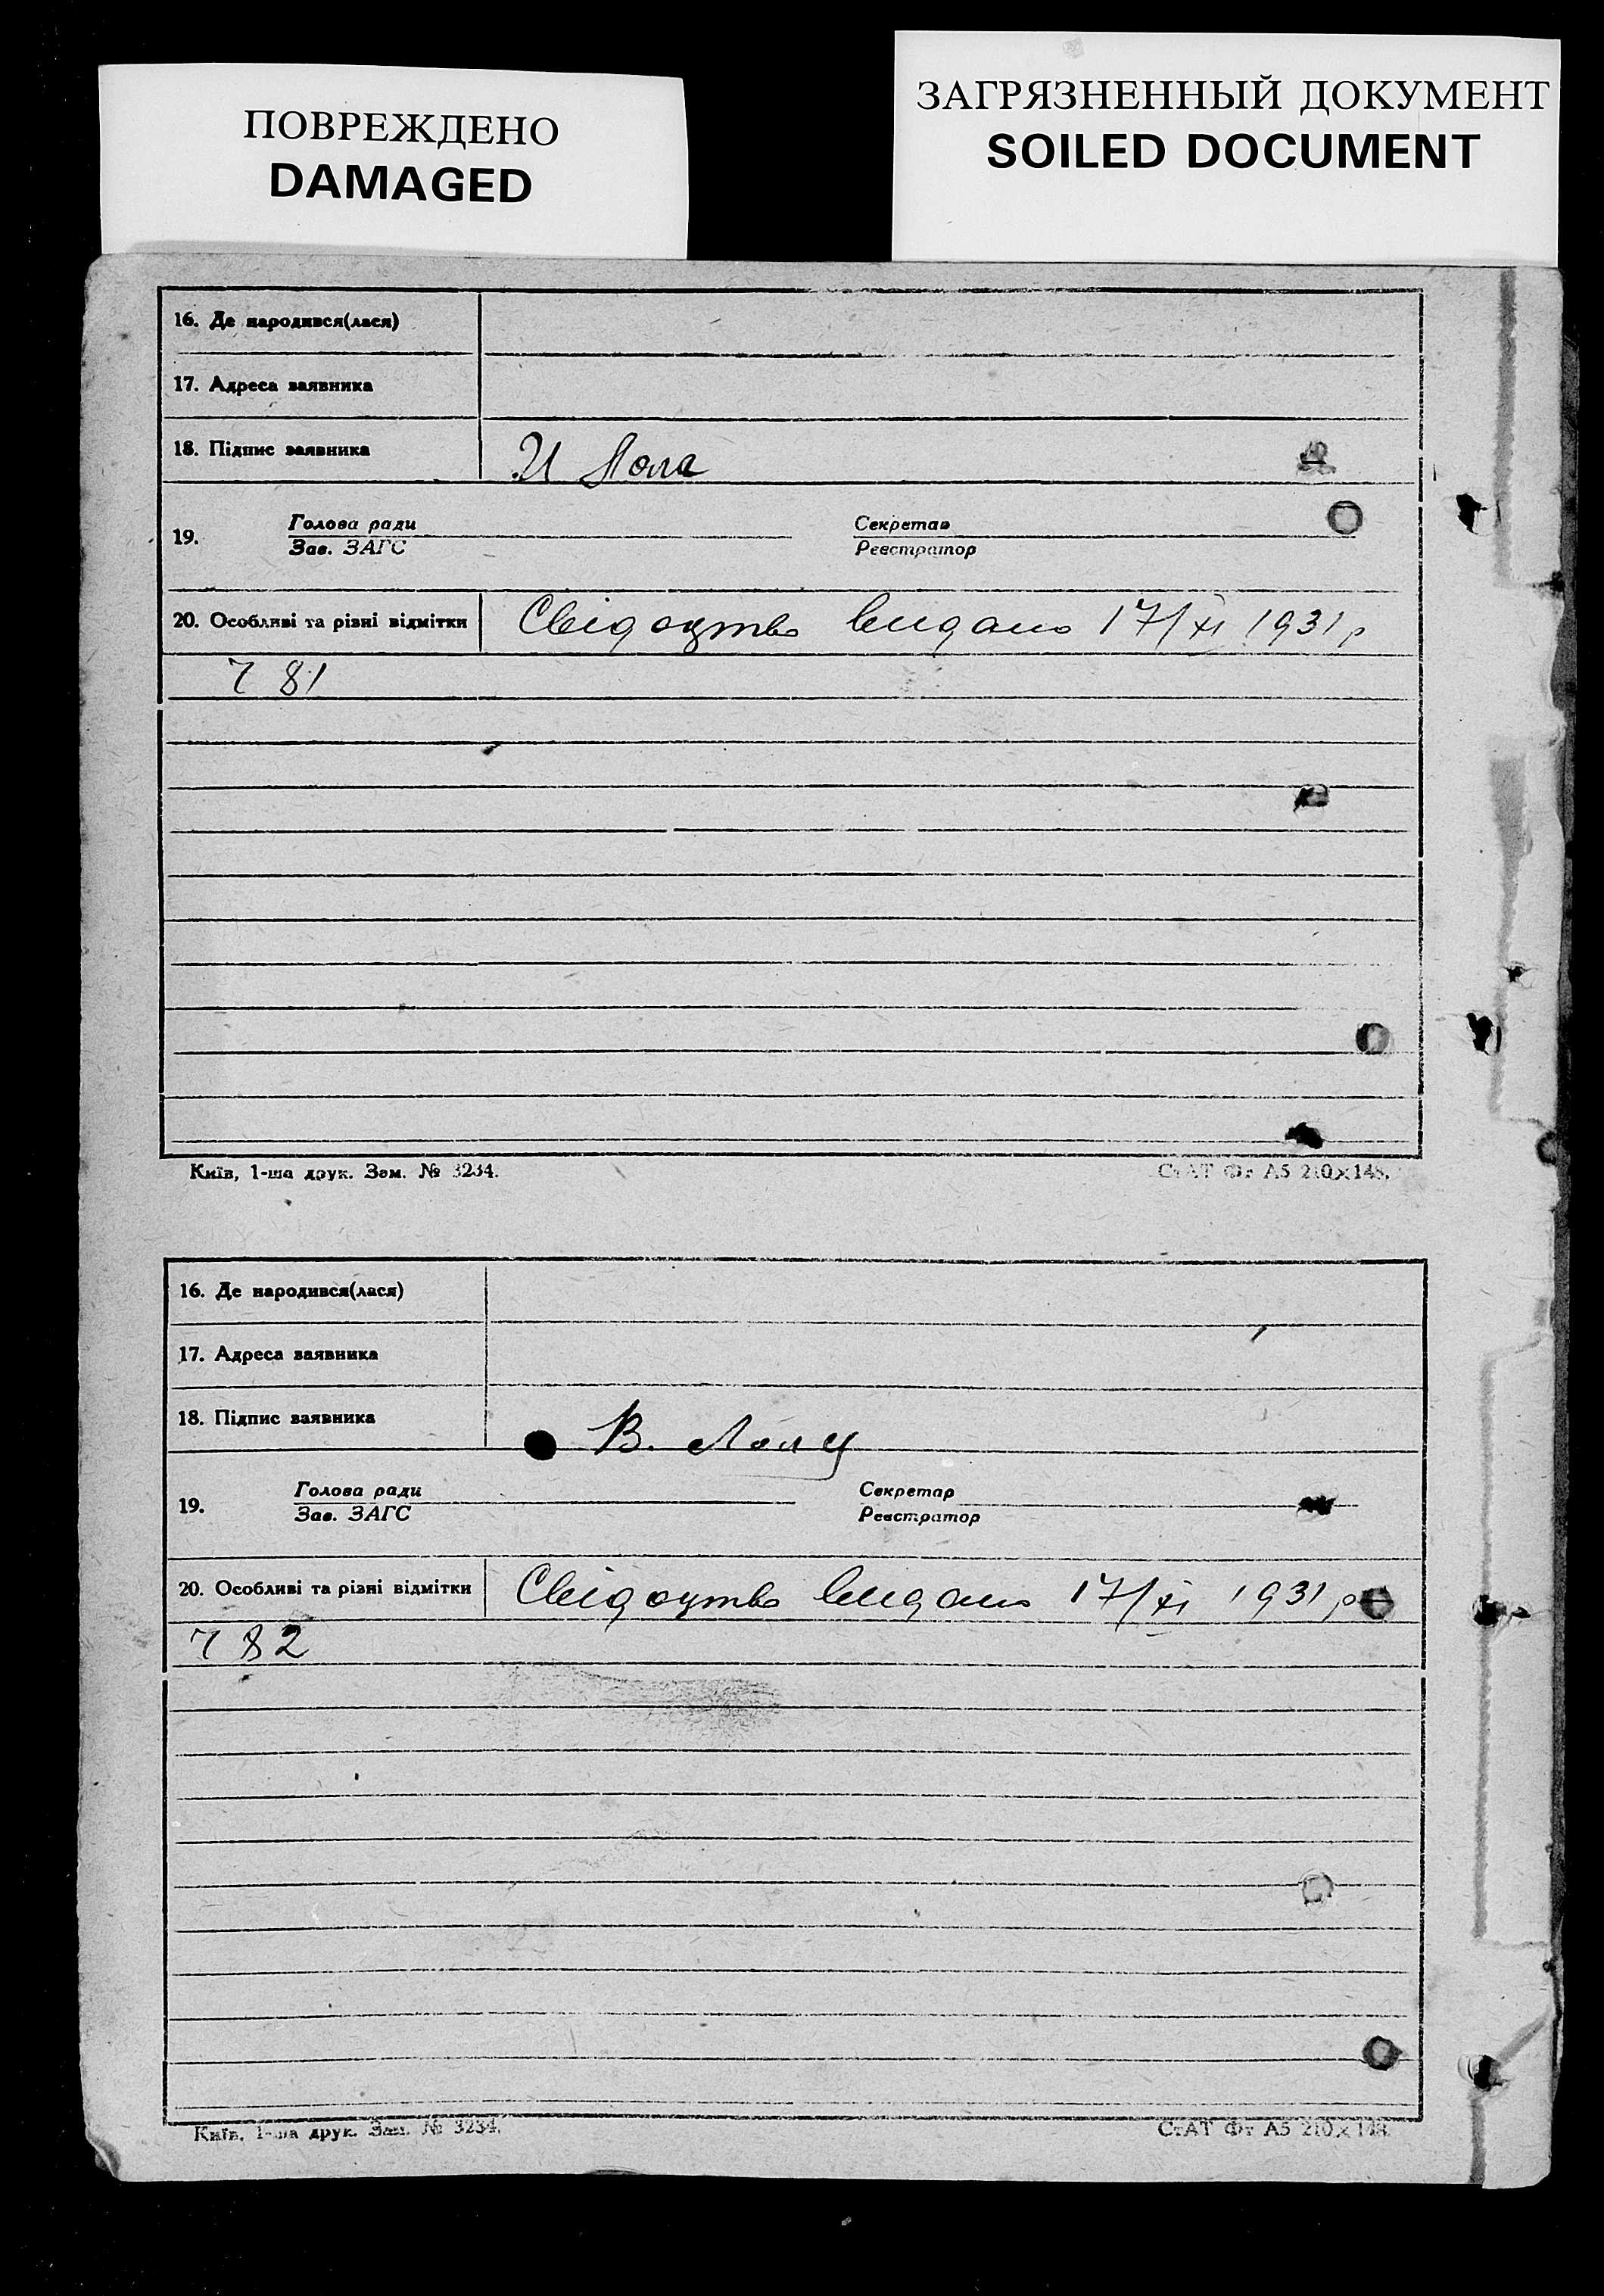 ПОВРЕЖДЕНО
DAMAGED
ЗАГРЯЗНЕННЫЙ ДОКУМЕНТ
SOILED DOCUMENT
16. Де народився(лася)
17. Адреса заявника
18. Підпис заявника
19. Голова ради Секретар
Зав. ЗАГС Реєстратор
20. Особливі та різні відмітки Свідоцтво видано 17/XI 1931 р
Ч 81
Київ, 1-ша друк. Зам. № 3234. СтАТ Фт А5 210×148.
16. Де народився(лася)
17. Адреса заявника
18. Підпис заявника В.
19. Голова ради Секретар
Зав. ЗАГС Реєстратор
20. Особливі та різні відмітки Свідоцтво видано 17/XI 1931 р
Ч 82
Київ, 1-ша друк. Зам. № 3234. СтАТ Фт А5 210×148.